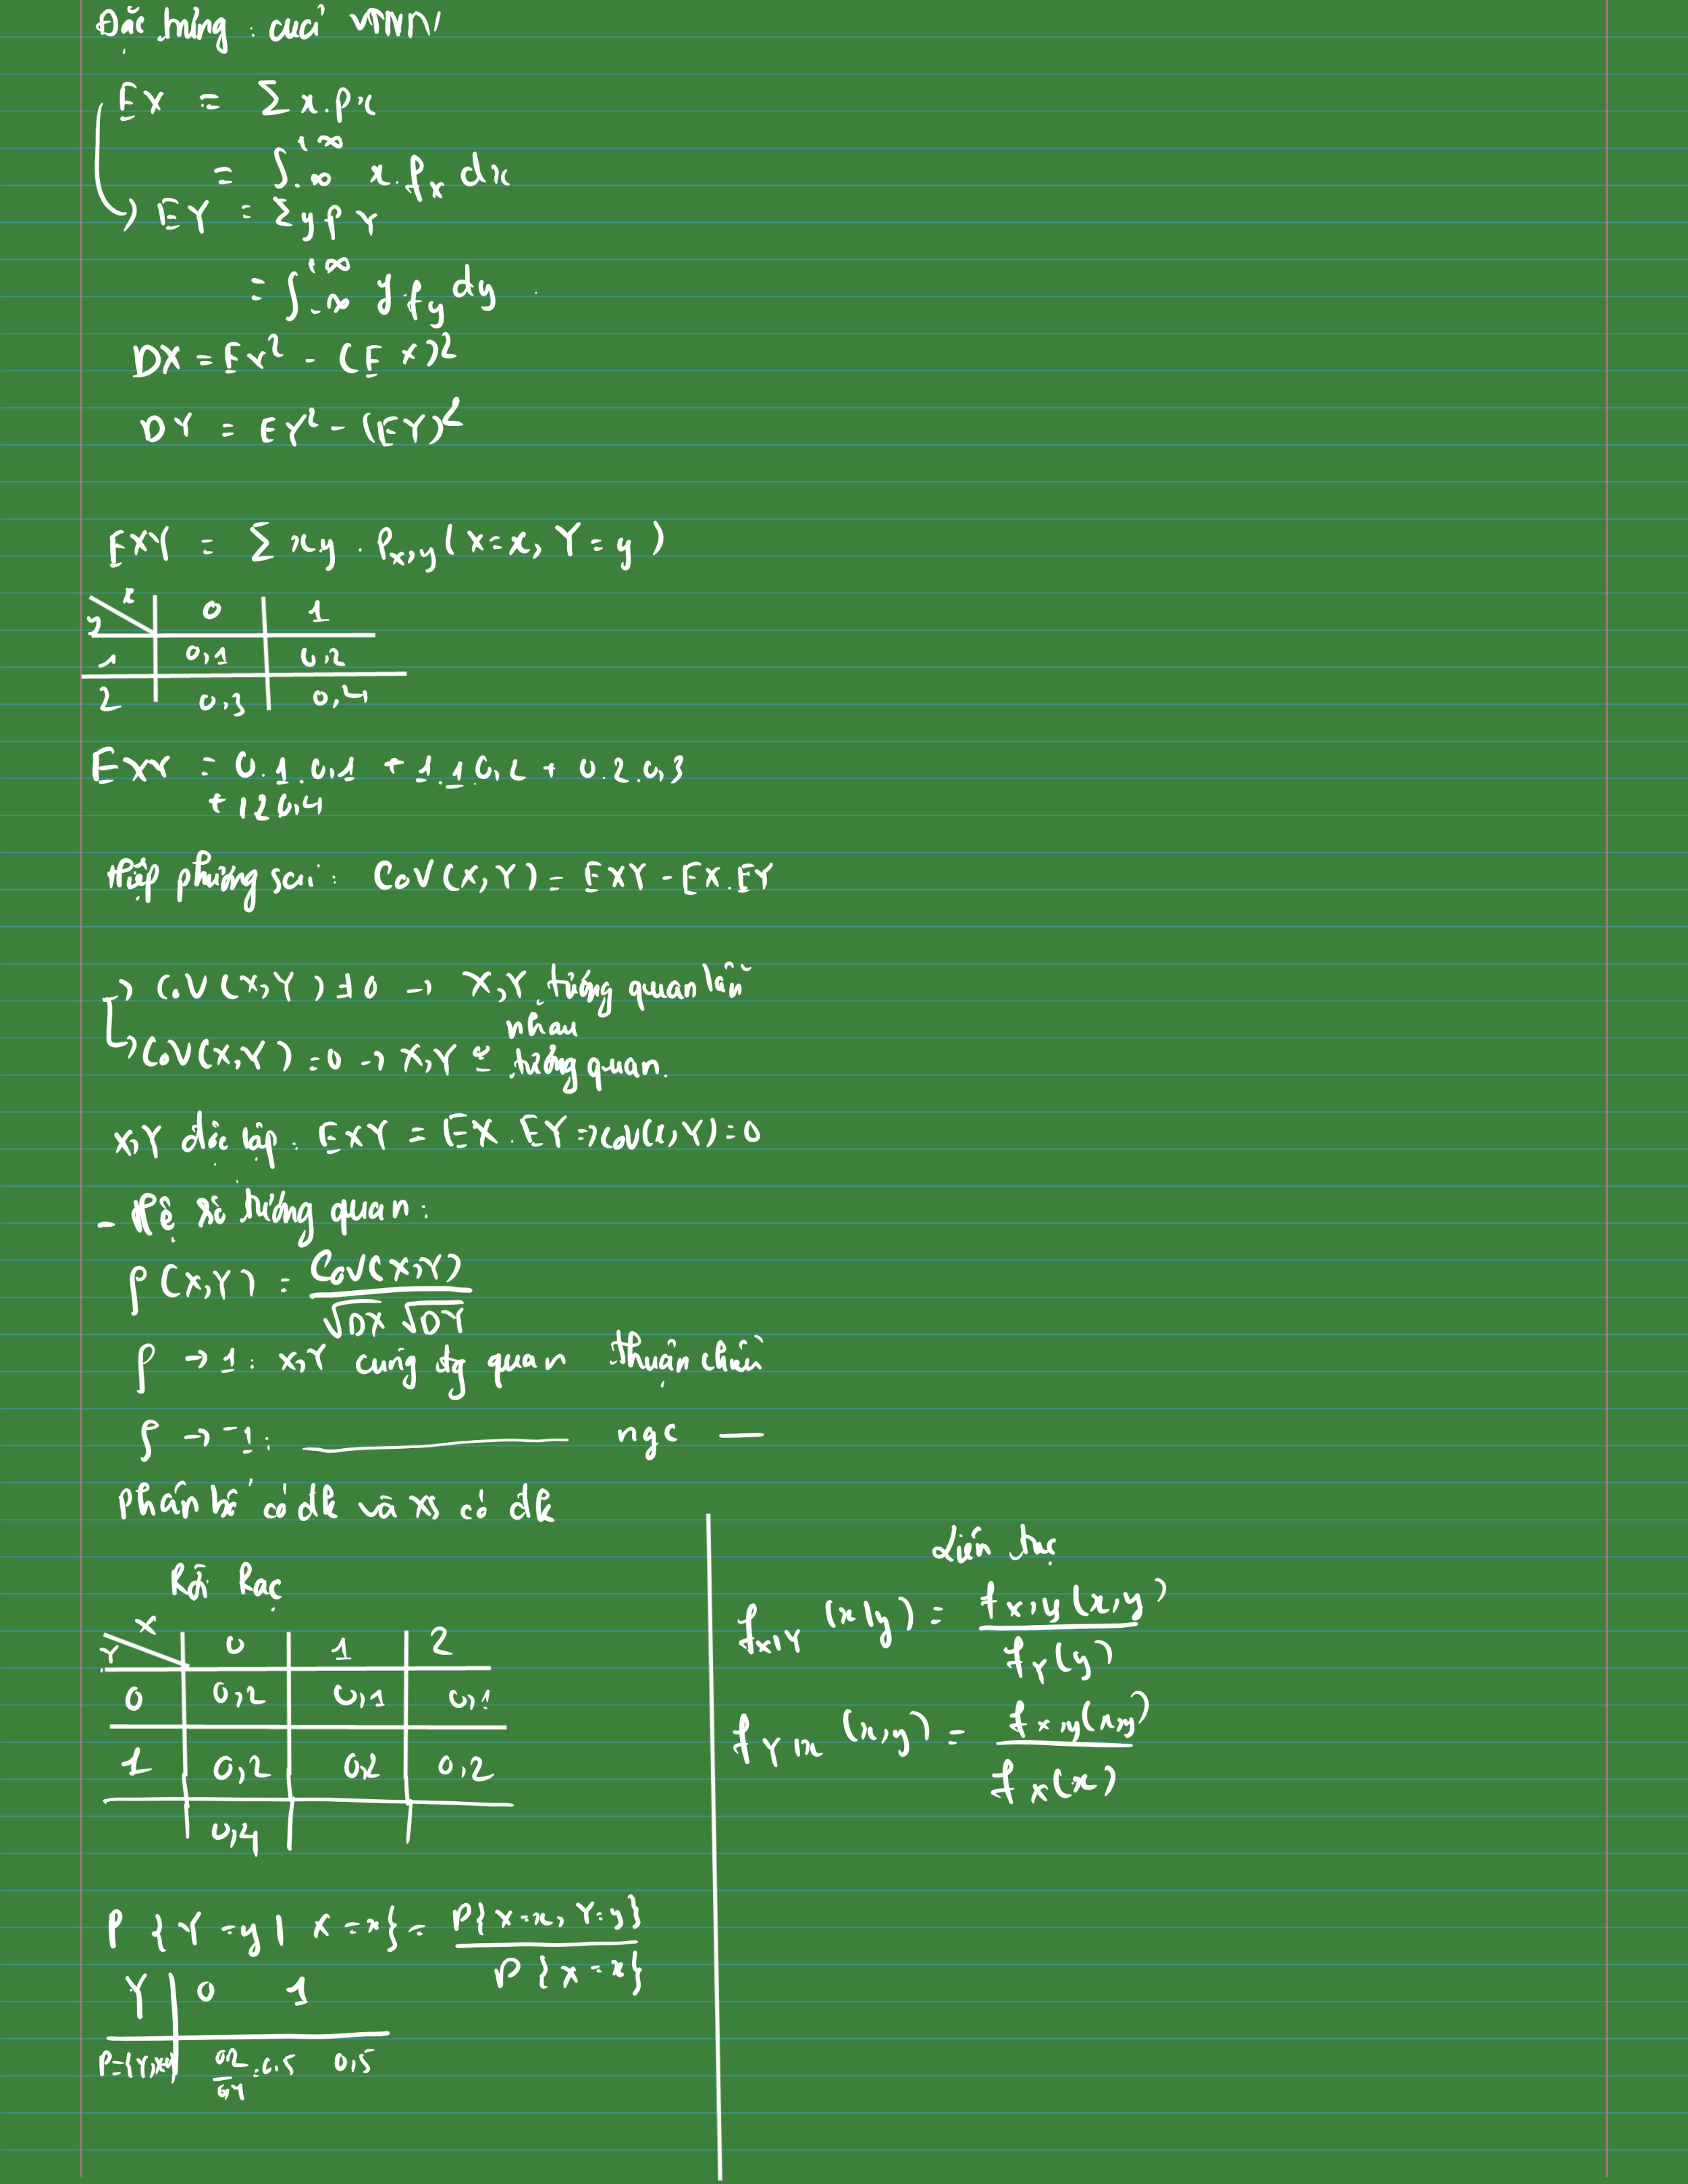 Đặc trưng của VTNN
EX = Σ x.px
= ∫-∞+∞ x.fx dx
EY = Σ y pY
= ∫-∞+∞ y.fy dy
DX = EX² - (EX)²
DY = EY² - (EY)²
EXY = Σ xy . Px,y (X=x, Y=y)
x 0 1
y
1 0,1 0,2
2 0,3 0,4
EXY = 0.1.0,1 + 1.1.0,2 + 0.2.0,3
+ 1.2.0,4
Hiệp phương sai: Cov(X,Y) = EXY - EX.EY
Cov(X,Y) ≠ 0 → X,Y tương quan lẫn
nhau
Cov(X,Y) = 0 → X,Y tương quan.
X,Y độc lập: EXY = EX.EY ⇒ Cov(X,Y) = 0
- Hệ số tương quan:
ρ(X,Y) = Cov(X,Y) / √DX √DY
ρ → 1: X,Y cùng tg quan thuận chiều
ρ → -1: ngc
Phân bố có đk và XS có đk
Rời Rạc
X 0 1 2
Y
0 0,2 0,1 0,1
1 0,2 0,2 0,2
0,4
P{Y=y | X=x} = P{X=x, Y=y} / P{X=x}
Y 0 1
0,2/0,4 = 0,5 0,5
Liên tục
fX|Y (x|y) = fX,Y (x,y) / fY(y)
fY|x (x,y) = fX,y(x,y) / fX(x)